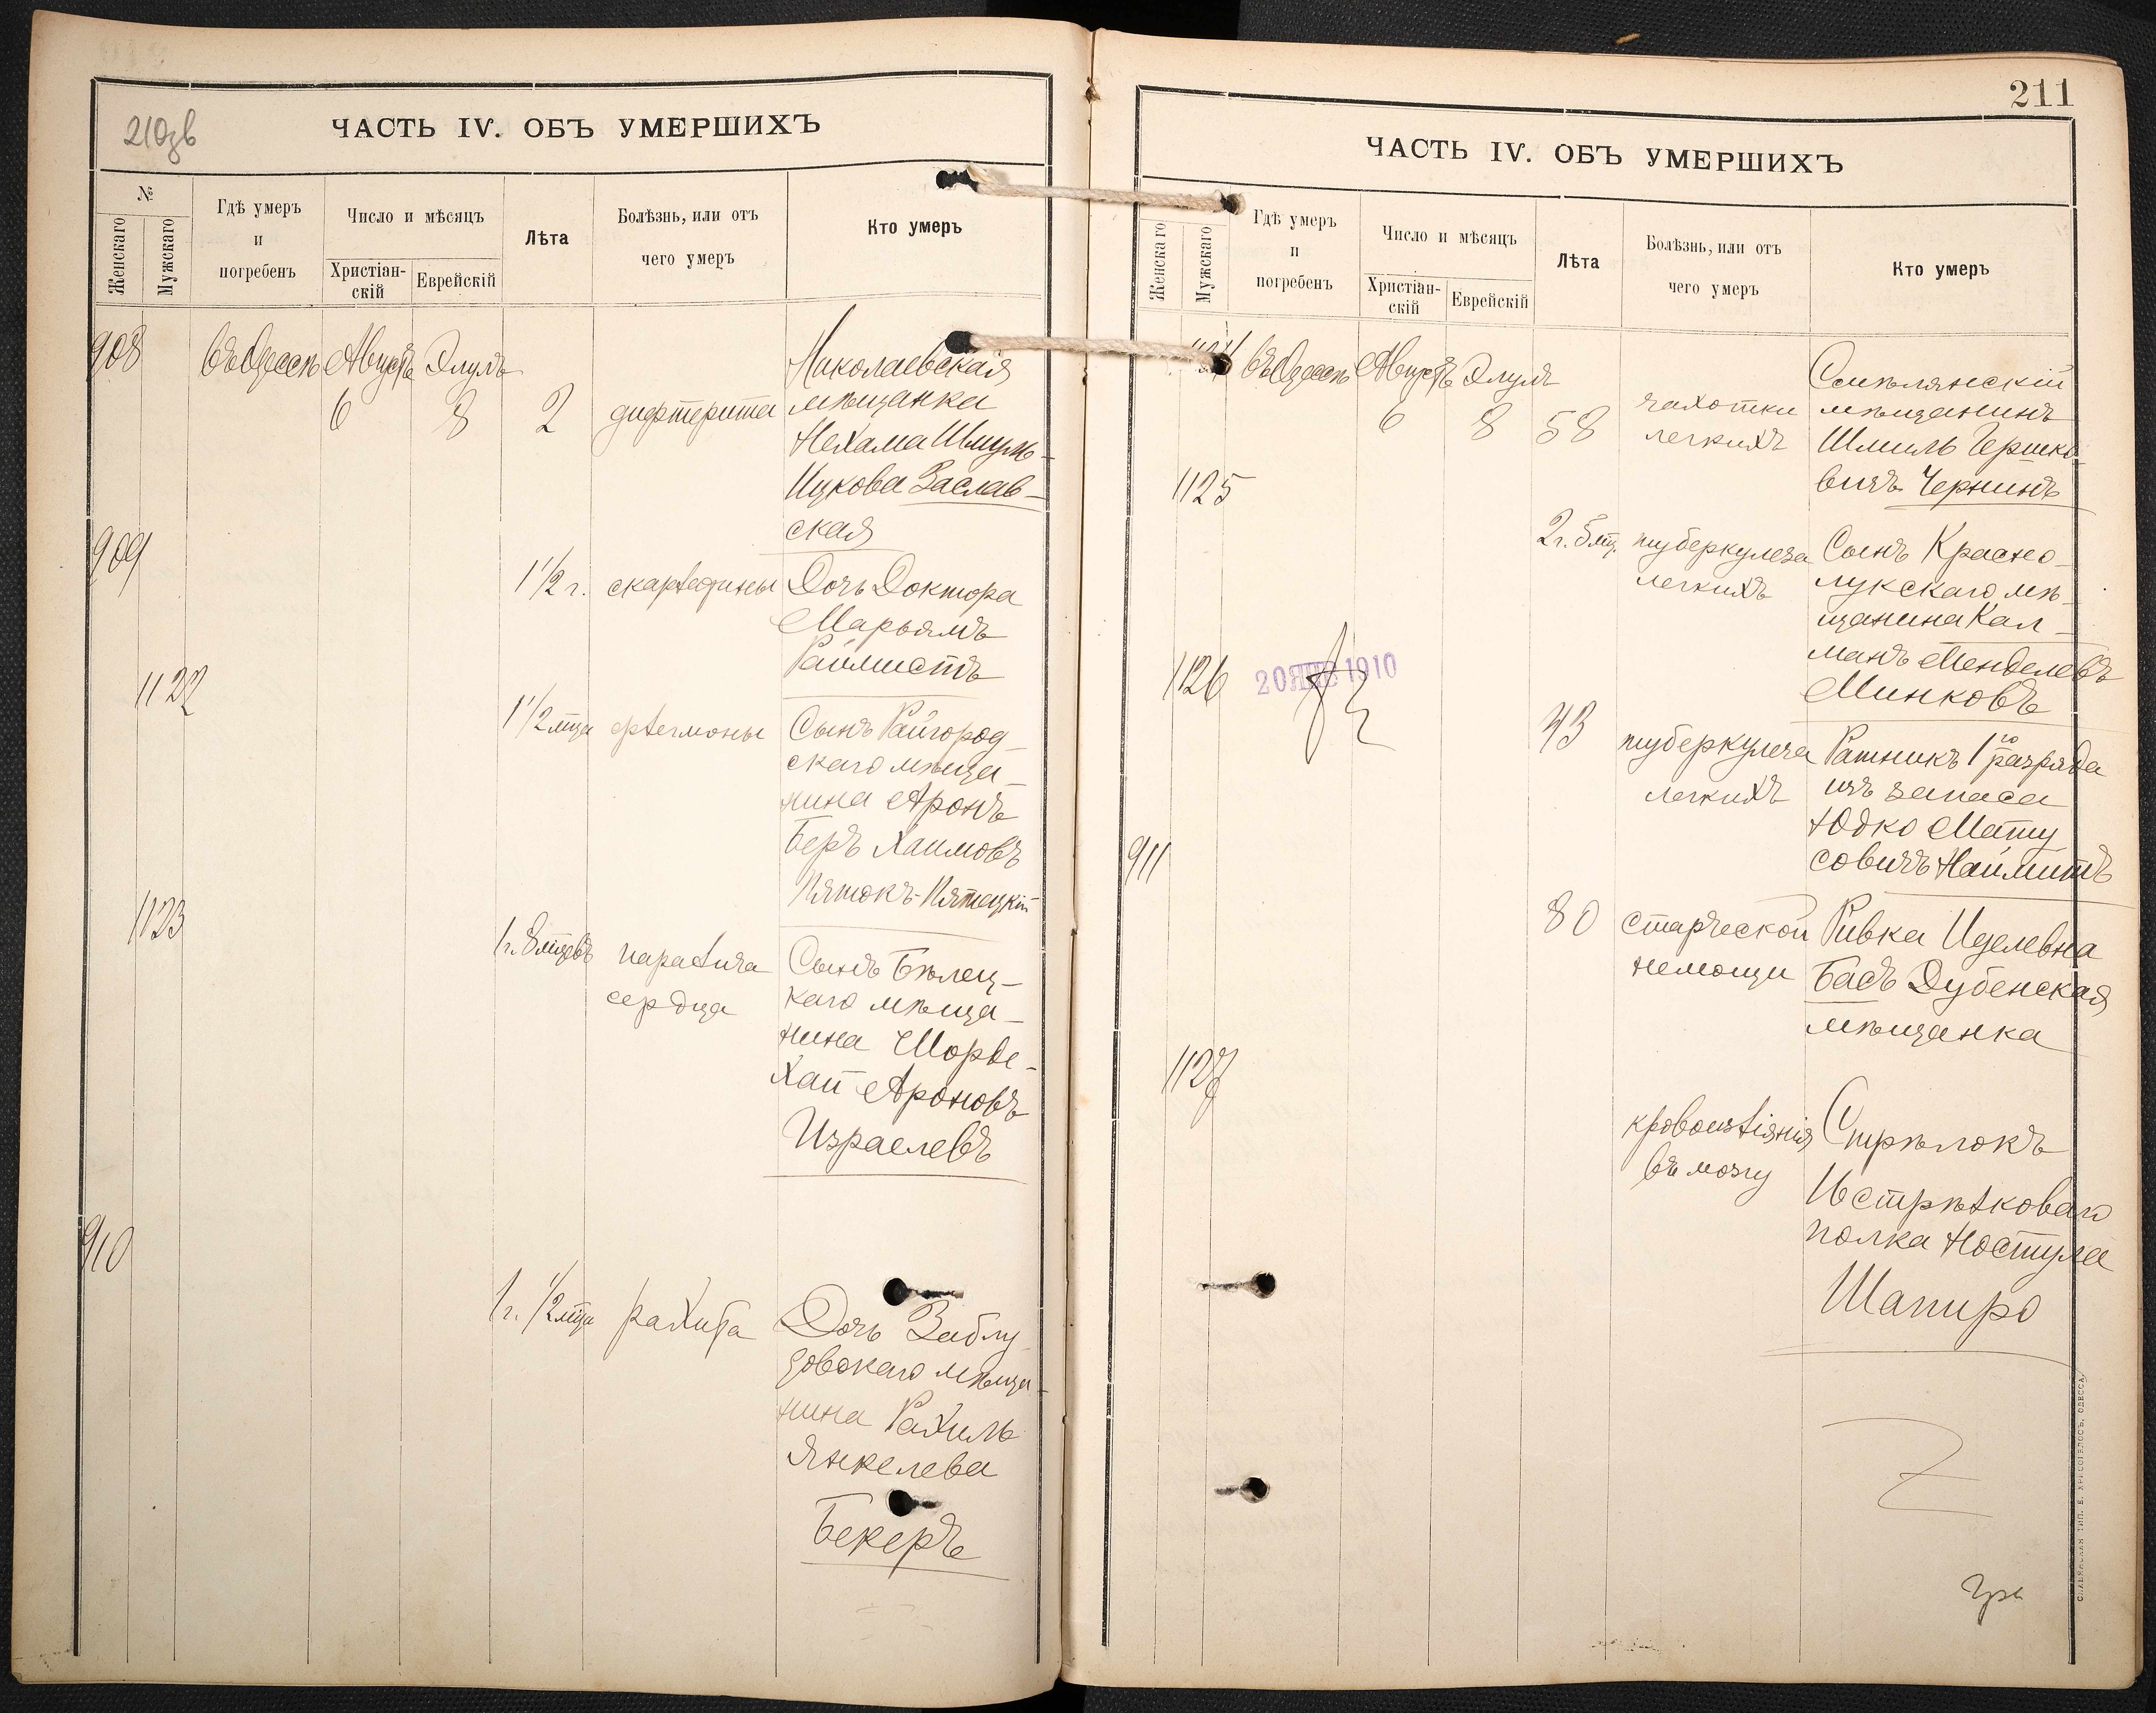 210зв
ЧАСТЬ IV. ОБЪ УМЕРШИХЪ
№
Женскаго
Мужскаго
Гдѣ умеръ
и
погребенъ
Число и мѣсяцъ
Христіан-
скій
Еврейскій
Лѣта
Болѣзнь, или отъ
чего умеръ
Кто умеръ
908
въ Одессѣ Августъ Элулъ
6 8 2 дифтерита
Николаевская
мѣщанка
Нехама Шмуль-
Ицкова Заслав-
ская
909
1 1/2 г. скарлатины
Дочь Доктора
Марьямъ
Раймистъ
1122
1 1/2 мца флегмоны
Сынъ Райгород-
скаго мѣща-
нина Аронъ
Беръ Хаимовъ
Пятокъ-Пятецкій
1123
1г. 8 мцевъ паралича
сердца
Сынъ Бѣлец-
каго мѣща-
нина Шорде-
Хай Ароновъ
Израелевъ
910
1г. 1/2 мца рахита
Дочь Заблу
довскаго мѣща-
нина Рахиль
Янкелева
Бекеръ
211
ЧАСТЬ IV. ОБЪ УМЕРШИХЪ
Женскаго
Мужскаго
Гдѣ умеръ
и
погребенъ
Число и мѣсяцъ
Христіан-
скій
Еврейскій
Лѣта
Болѣзнь, или отъ
чего умеръ
Кто умеръ
1124
въ Одессѣ Августъ Элулъ
6 8 58 чахотки
легкихъ
Смѣлянскій
мѣщанинъ
Шмиль Гершко-
вичъ Чернинъ
1125
2г. 5 мц. туберкулеза
легкихъ
Сынъ Красно-
лукскаго мѣ-
щанина Кал-
манъ Менделевъ
Минковъ
1126
20 ЯНВ 1910
43 туберкулеза
легкихъ
Ратникъ 1го разряда
изъ запаса
Юдко Мату
совичъ Наймитъ
911
80 старческой
немощи
Ривка Иделевна
Басъ Дубенская
мѣщанка
1127
кровоизліянія
въ мозгу
Стрѣлокъ
стрѣлковаго
полка Ностула
Шапиро
СЛАВЯНСКАЯ ТИП. Е. ХРИСОГЕЛОСЪ, ОДЕССА.